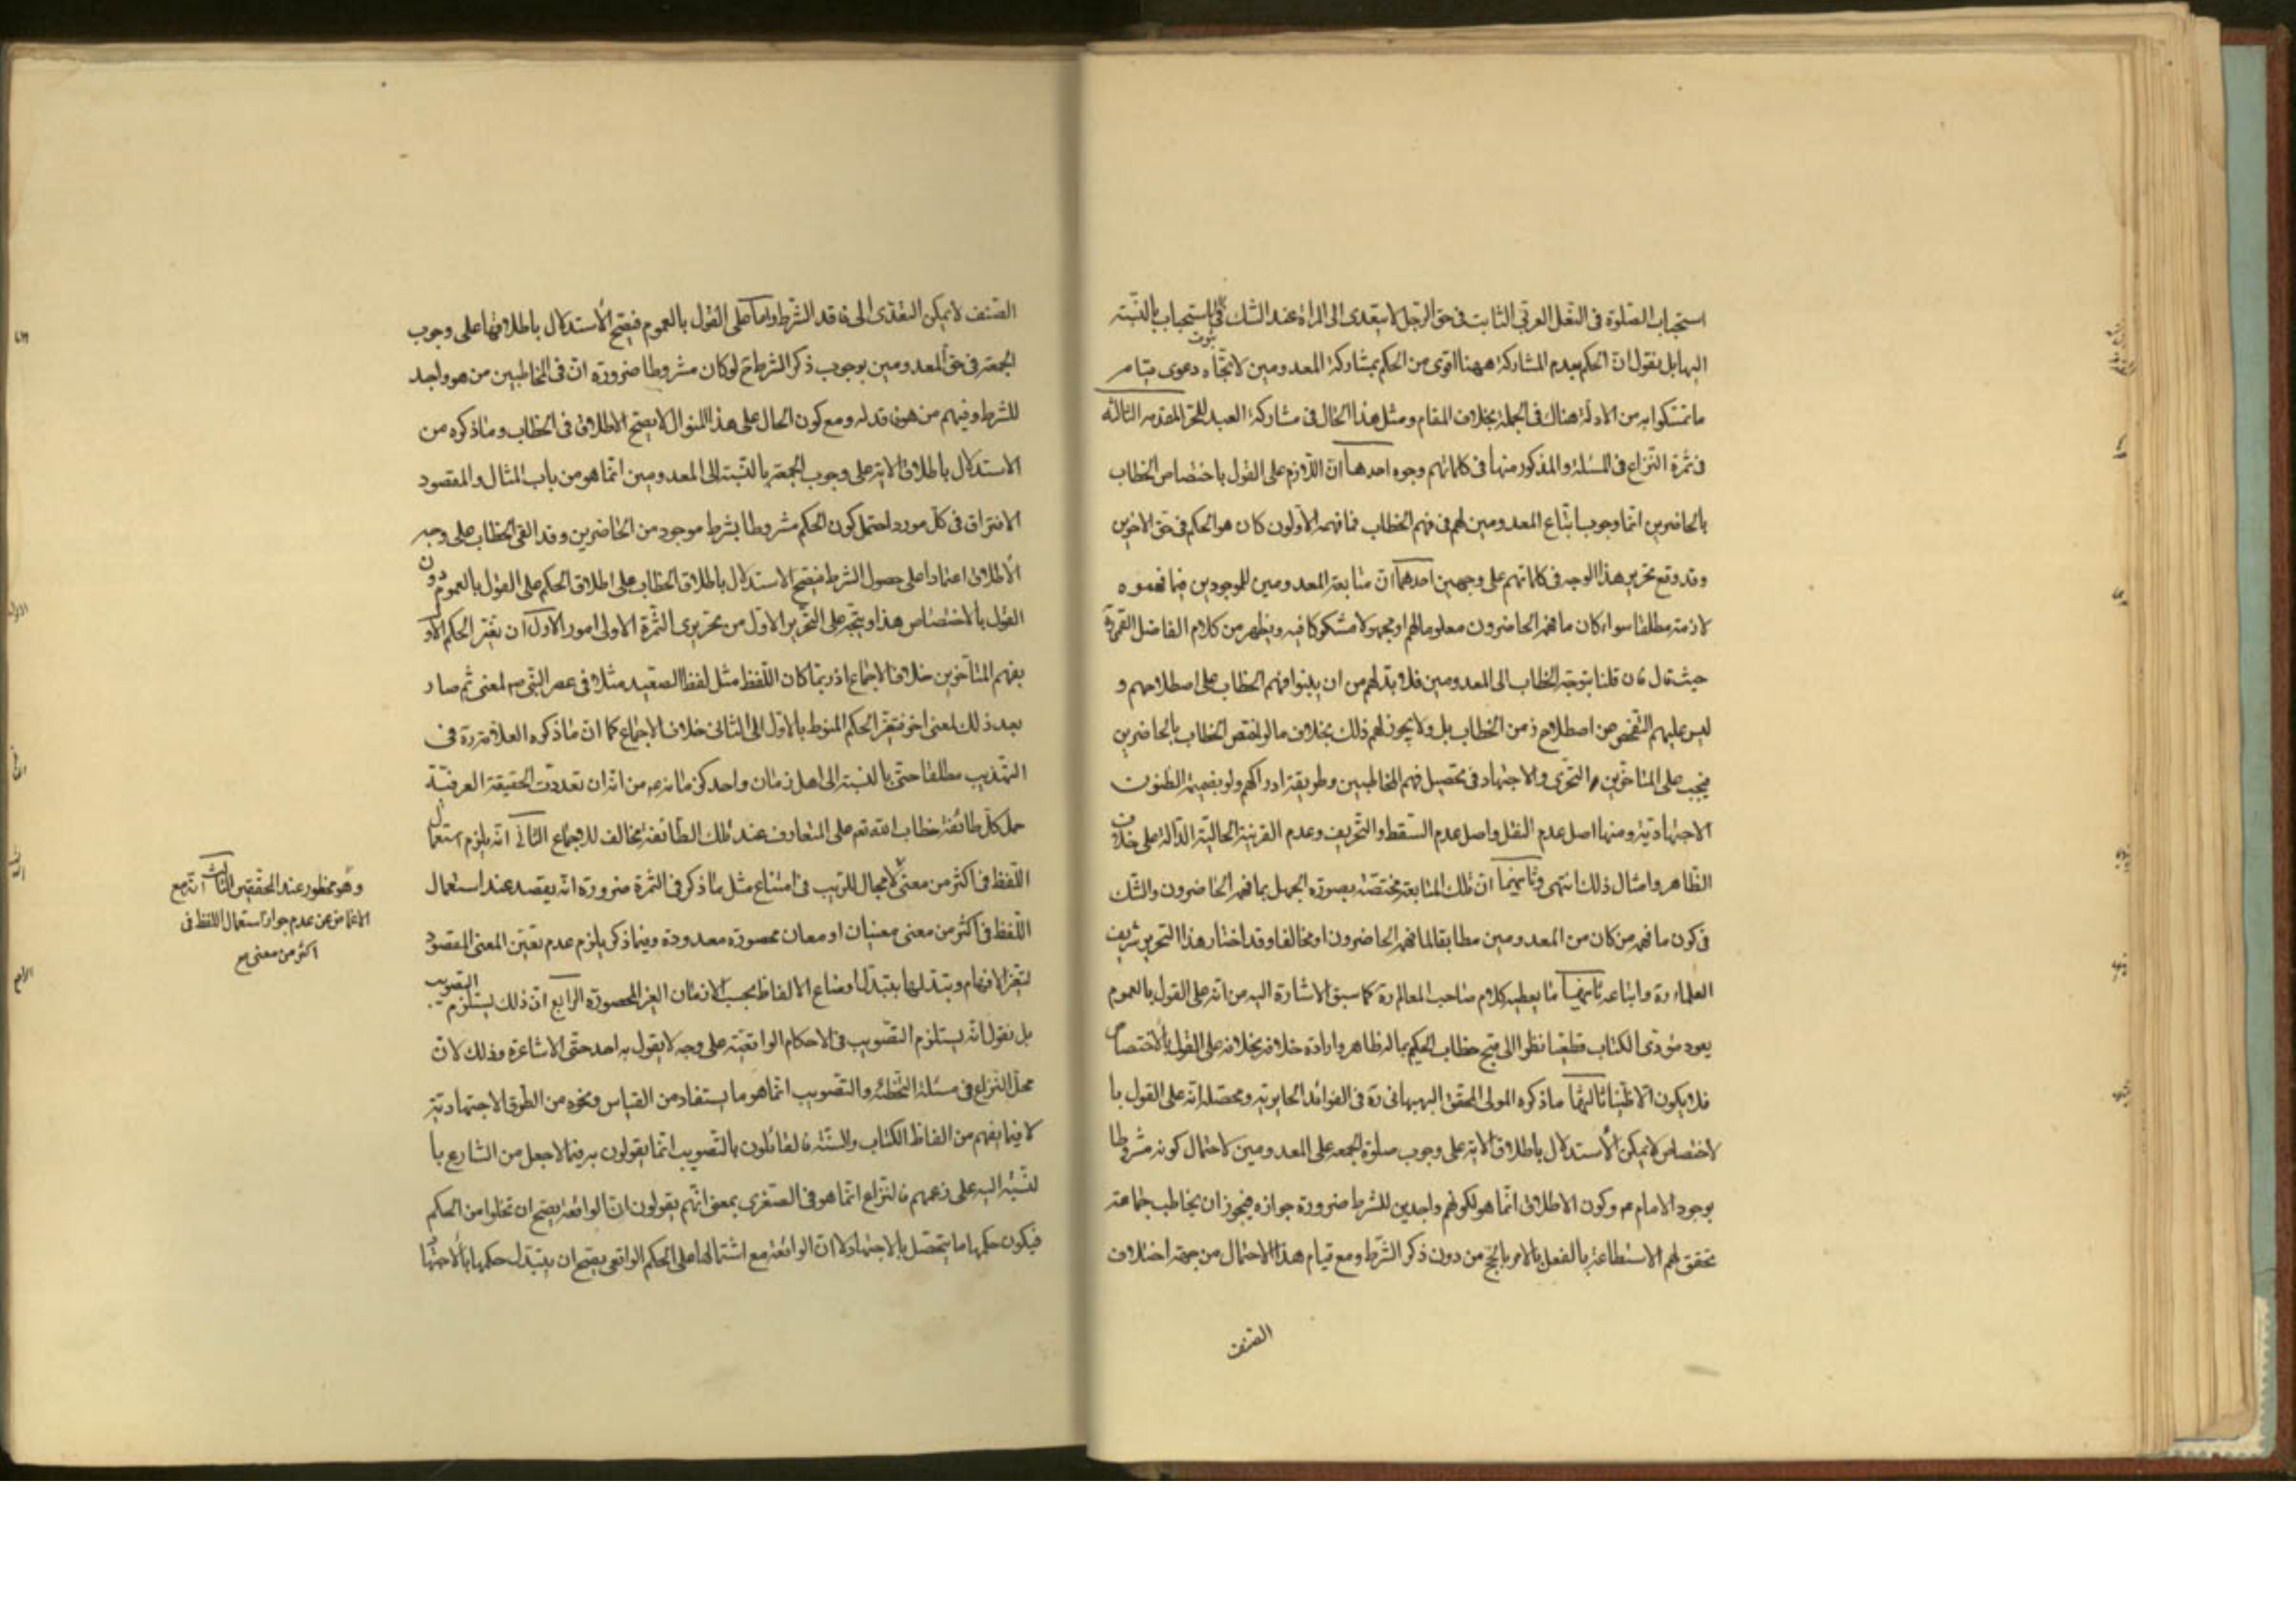 استحباب الصلوة فى النعل العربى الثابت فى حق الرجل لا يتعدى الى المراة عند الشك فى ثبوت الاستحباب بالنسبة
اليها بل نقول ان الحكم بعدم المشاركة ههنا اقوى من الحكم بمشاركة المعدومين لاتجاه دعوى قيام
ما تمسكوا به من الادلة هناك فى الجملة بخلاف المقام ومثل هذا الحال فى مشاركة العبد للحر المقدمه الثالثة
فى ثمرة النزاع فى المسئلة والمذكور منها فى كلماتهم وجوه احدها ان اللازم على القول باختصاص الخطاب
بالحاضرين انما وجوب اتباع المعدومين لهم فى فهم الخطاب فما فهمه الاولون كان هو الحكم فى حق الاخرين
وقد وقع تحرير هذا الوجه فى كلماتهم على وجهين احدهما ان متابعة المعدومين للموجودين فيما فهموه
لازمة مطلقا سواء كان ما فهمه الحاضرون معلوما لهم او مجهولا مشكوكا فيه ويظهر من كلام الفاضل القمى ره
حيث قال فان قلنا بتوجه الخطاب الى المعدومين فلا بد لهم من ان يبنوا فهم الخطاب على اصطلاحهم و
ليس عليهم التفحص من اصطلاح زمن الخطاب بل ولا يجوز لهم ذلك بخلاف ما لو اختص الخطاب بالحاضرين
فيجب على المتاخرين التحرى والاجتهاد فى تحصيل فهم المخاطبين وطريقة ادراكهم ولو بضميمة الظنون
الاجتهادية ومنها اصل عدم النقل واصل عدم السقط والتحريف وعدم القرينة الحالية الدالة على خلاف
الظاهر وامثال ذلك انتهى وثانيهما ان تلك المتابعة مختصة بصورة الجهل بما فهمه الحاضرون والشك
فى كون ما فهمه من كان من المعدومين مطابقا لما فهمه الحاضرون او مخالفا وقد اختار هذا التحرير شريف
العلماء ره واتباعه ثانيها ما يعطيه كلام صاحب المعالم ره كما سبق الاشارة اليه من انه على القول بالعموم
يعود مؤدى الكتاب قطعيا نظرا الى قبح خطاب الحكيم بما له ظاهر وارادة خلافه بخلافه على القول بالاختصاص
فلا يكون الا ظنيا ثالثها ما ذكره المولى المحقق البهبهانى ره فى الفوائد الحايرية ومحصله انه على القول با
لاختصاص لا يمكن الاستدلال باطلاق الاية على وجوب صلوة الجمعه على المعدومين لاحتمال كونه مشروطا
بوجود الامام م وكون الاطلاق انما هو لكونهم واجدين للشرط ضرورة جوازه فيجوز ان يخاطب جماعة
تحقق لهم الاستطاعة بالفعل بالامر بالحج من دون ذكر الشرط ومع قيام هذا الاحتمال من جهة اختلاف
الصنف
الصنف لا يمكن التعدى الى فاقد الشرط واما على القول بالعموم فيصح الاستدلال باطلاقها على وجوب
الجمعة فى حق المعدومين بوجوب ذكر الشرط ح لو كان مشروطا ضرورة ان فى المخاطبين من هو واجد
للشرط وفيهم من هو فاقد له ومع كون الحال على هذا المنوال لا يصح الاطلاق فى الخطاب وما ذكره من
الاستدلال باطلاق الاية على وجوب الجمعة بالنسبة الى المعدومين انما هو من باب المثال والمقصود
الافتراق فى كل مورد احتمل كون الحكم مشروطا بشرط موجود من الحاضرين وقد القى الخطاب على وجه
الاطلاق اعتمادا على حصول الشرط فيصح الاستدلال باطلاق الخطاب على اطلاق الحكم على القول بالعموم دون
القول بالاختصاص هذا ويتجه على التحرير الاول من تحريرى الثمرة الاولى امور الاول ان تغير الحكم الاو
بفهم المتاخرين خلاف الاجماع اذ ربما كان اللفظ مثل لفظ الصعيد مثلا فى عصر النبى ص لمعنى ثم صار
بعد ذلك لمعنى اخر فتغير الحكم المنوط بالاول الى الثانى خلاف الاجماع كما ان ما ذكره العلامة ره فى
التهذيب مطلقا حتى بالنسبة الى اهل زمان واحد من انه ان تعددت الحقيقة العرفية
حمل كل طائفة خطاب الله تعم على المتعارف عند تلك الطائفة مخالف للاجماع الثانى انه يلزم استعمال
اللفظ فى اكثر من معنى لا مجال للريب فى امتناع مثل ما ذكر فى الثمرة ضرورة انه يقصد عند استعمال
اللفظ فى اكثر من معنى معنيان او معان محصورة معدودة وفيما ذكر يلزم عدم تعين المعنى المقصود
لتغير الافهام وتبدلها بتبدل اوضاع الالفاظ بحسب الازمان الغير المحصورة الرابع ان ذلك يستلزم التصويب
بل نقول انه يستلزم التصويب فى الاحكام الواقعية على وجه لا يقول به احد حتى الاشاعرة وذلك لان
محل النزاع فى مسئلة التخطئه والتصويب انما هو ما يستفاد من القياس ونحوه من الطرق الاجتهادية
لا فيما يفهم من الفاظ الكتاب والسنة فالقائلون بالتصويب انما يقولون به فيما لا جعل من الشارع با
لنسبة اليه على زعمهم فالنزاع انما هو فى الصغرى بمعنى انهم يقولون ان الواقعة يصح ان تخلوا من الحكم
فيكون حكمها ما يتحصل بالاجتهاد لا ان الواقعة مع اشتمالها على الحكم الواقعى يصح ان يتبدل حكمها بالاجتهاد
وهو محظور عند المحققين الثالث انه مع
الاغماض عن عدم جواز استعمال اللفظ فى
اكثر من معنى مع